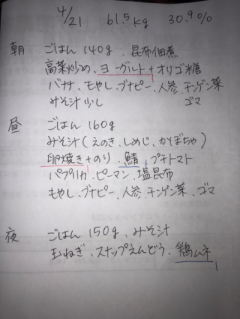 4/21 61.5kg 30.9%
朝 ごはん 140g、昆布佃煮
高菜炒め、ヨーグルト+オリゴ糖
バナナ、もやし、ブナピー、人参、チンゲン菜
みそ汁少し ゴマ
昼 ごはん 160g
みそ汁(えのき、しめじ、かぼちゃ)
卵焼き+のり、鯖、プチトマト
パプリカ、ピーマン、塩昆布
もやし、ブナピー、人参、チンゲン菜、ゴマ
夜 ごはん 150g、みそ汁
玉ねぎ、スナップえんどう、鶏ムネ